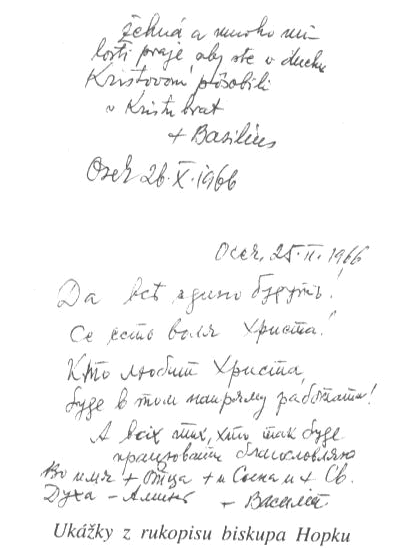 žehná a mnoho mi-
losti praje, aby ste v duchu
Kristovom pôsobili
v Kristu brat
+ Basilius
Osek 26.X.1966
Осек, 25.II.1966
Да всѣ едино будутъ!
Се есть воля Христа!
Кто любит Христа,
буде в том напряму работати!
А всіх тих, хто так буде
працювати благословляю
Во имя + Отца + и Сына и + Св.
Духа - Аминь + Василій
Ukážky z rukopisu biskupa Hopku